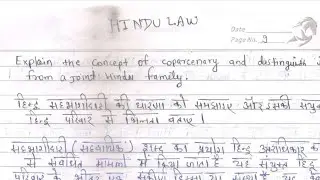 HINDU LAW
Date
Page No. 9
Explain the concept of coparcenary and distinguish
from a joint Hindu family.
हिन्दू सहभागीदारी की धारणा को समझाइए और इसकी
हिन्दू परिवार से भिन्नता बताए ।
सहभागीदारी शब्द का प्रयोग हिन्दू
से संबंधित मामलों में किया जाता है यह संयुक्त हिन्दू
परिवार के भीतर एक